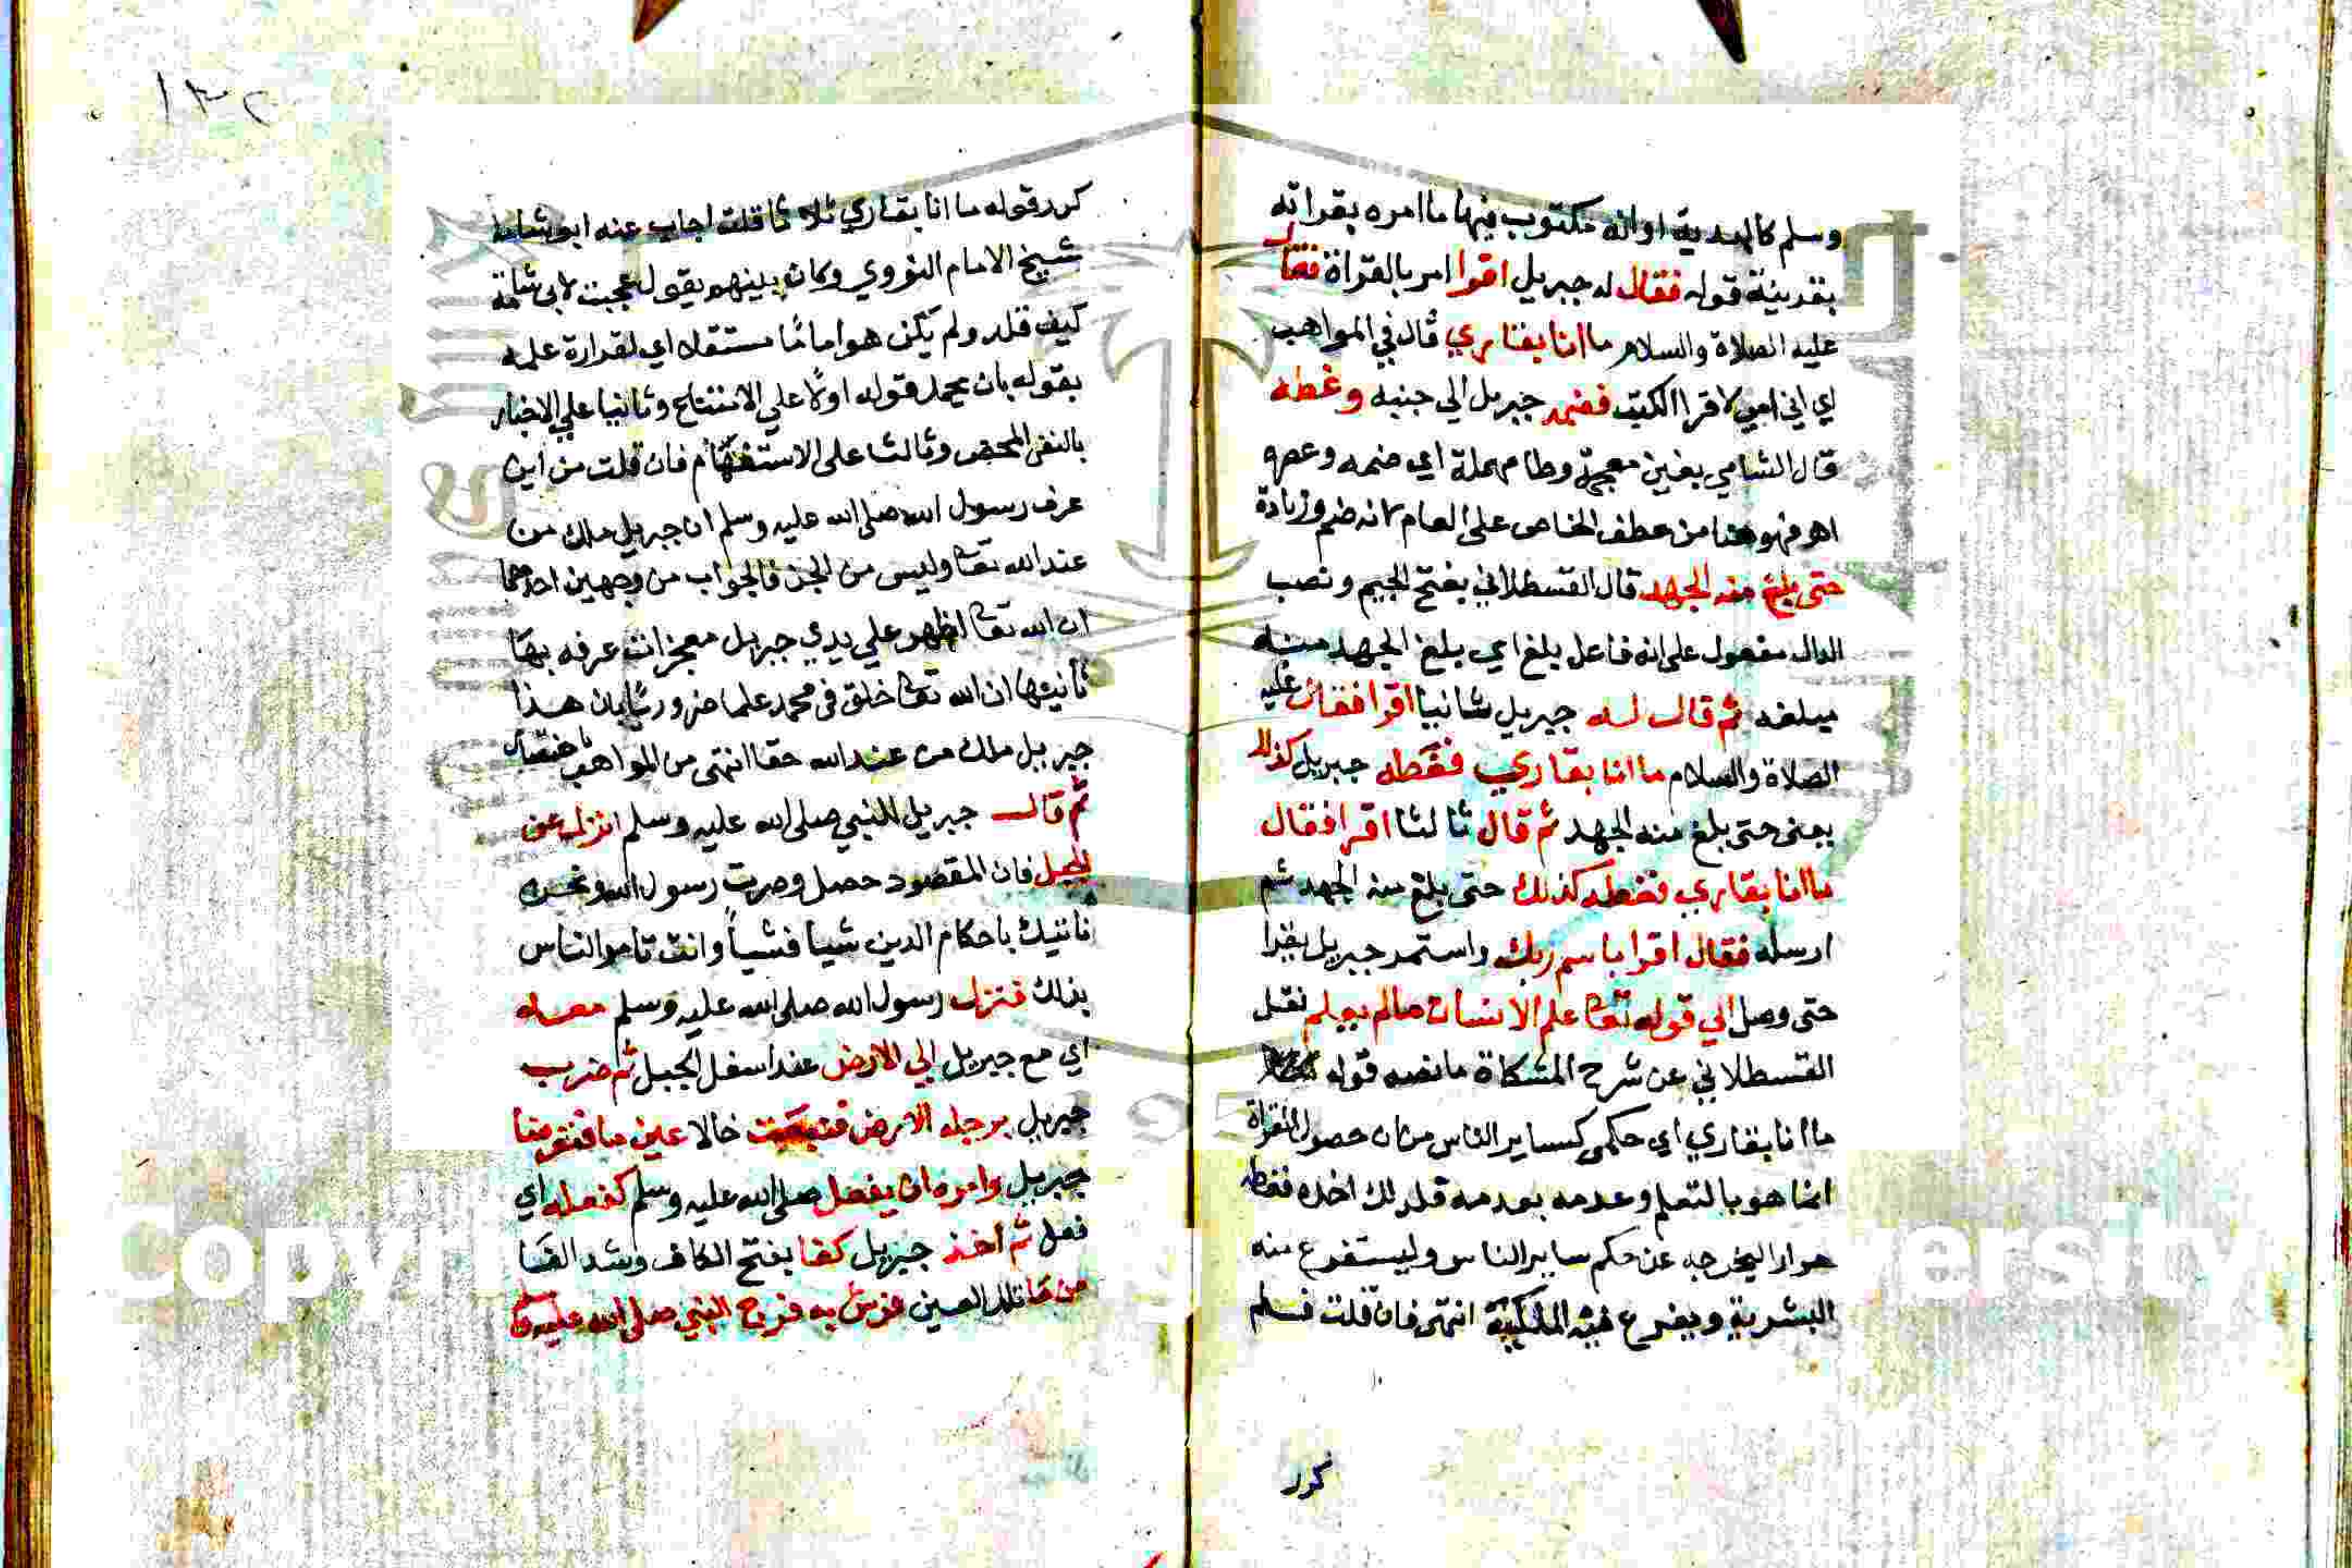 وسلم كالهدية او انه مكتوب فيها ما امره بقراته
بقرينة قوله فقال له جبريل اقرا امر بالقراة فقال
عليه الصلاة والسلام ما انا بقاري قال في المواهب
اي اني امي لا اقرا الكتب فضمه جبريل الي جنبه وغطه
قال الشامي بغين معجمة وطا مهملة اي ضمه وعصره
اهو فهو هنا من عطف الخاص على العام لانه ضم وزيادة
حتى بلغ منه الجهد قال القسطلاني بفتح الجيم ونصب
الدال مفعول على انه فاعل بلغ اي بلغ الجهد منه
مبلغه ثم قال له جبريل ثانيا اقرا فقال عليه
الصلاة والسلام ما انا بقاري فغطه جبريل كذلك
يعني حتى بلغ منه الجهد ثم قال ثالثا اقرا فقال
ما انا بقاري فغطه كذلك حتى بلغ منه الجهد ثم
ارسله فقال اقرا باسم ربك واستمر جبريل يقرا
حتى وصل الي قوله تعا علم الانسان ما لم يعلم نقل
القسطلاني عن شرح المشكاة ما نصه قوله
ما انا بقاري اي حكمي كساير الناس من ان حصول القراة
انما هو بالتعلم وعدمه بعدمه فلذلك اخذه فغطه
مرارا ليخرجه عن حكم ساير الناس وليستفرغ منه
البشرية ويفرغ فيه الملكية انتهى فان قلت فلم
كرر
١٣٢
كرر قوله ما انا بقاري ثلاثا قلت اجاب عنه ابو شامة
شيخ الامام النووي وكان بينهم يقول عجبت لابي شامة
كيف قلد ولم يكن هو اماما مستقلا اي لغزارة علمه
بقوله بان يحمل قوله اولا على الامتناع وثانيا علي الاخبار
بالنفي المحض وثالثا على الاستفهام فان قلت من اين
عرف رسول الله صلى الله عليه وسلم ان جبريل ملك من
عند الله تعا وليس من الجن فالجواب من وجهين احدهما
ان الله تعا اظهر علي يدي جبريل معجزات عرفه بها
ثانيها ان الله تعا خلق في محمد علما ضروريا بان هذا
جبريل ملك من عند الله حقا انتهى من المواهب باختصار
ثم قال جبريل للنبي صلى الله عليه وسلم انزل عن
الجبل فان المقصود حصل وصرت رسول الله ونحن
ناتيك باحكام الدين شيا فشيا وانت تامر الناس
بذلك فنزل رسول الله صلى الله عليه وسلم معه
اي مع جبريل الي الارض عند اسفل الجبل ثم ضرب
جبريل برجله الارض فنبعت حالا عين ما فتوضا
جبريل وامره ان يفعل صلى الله عليه وسلم كفعله اي
فعل ثم اخذ جبريل كفا بفتح الكاف وشد الفا
من ما تلك العين فرش به فرج النبي صلى الله عليه وسلم